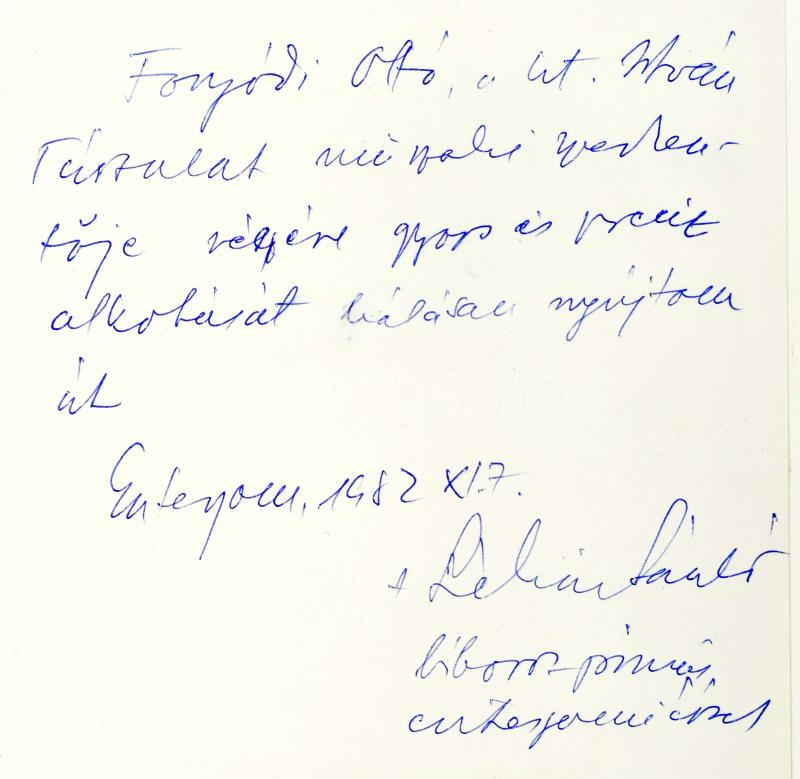 Fonyódi Ottó, a Szt. István
Társulat műszaki szerkesz-
tője részére gyors és precíz
alkotását hálásan nyújtom
át
Esztergom, 1982 XI.7.
+ Lékai László
bíboros prímás,
esztergomi érsek